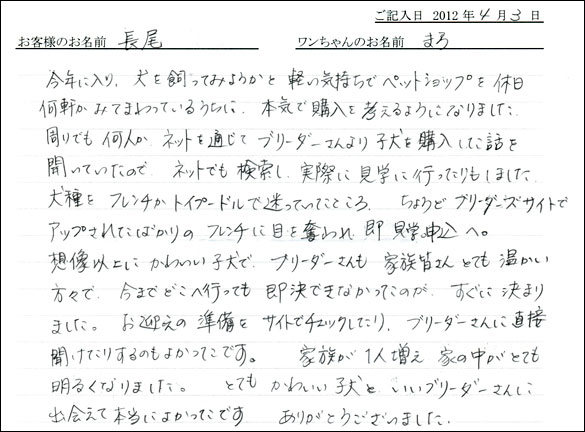 ご記入日 2012年4月3日
お客様のお名前 長尾 ワンちゃんのお名前 まろ
今年に入り、犬を飼ってみようかと軽い気持ちでペットショップを休日
何軒かみてまわっているうちに、本気で購入を考えるようになりました。
周りでも何人かネットを通じてブリーダーさんより子犬を購入した話を
聞いていたので、ネットでも検索し、実際に見学に行ったりもしました。
犬種をフレンチかトイプードルで迷っていたところ、ちょうどブリーダーズサイトで
アップされたばかりのフレンチに目を奪われ、即見学申込へ。
想像以上にかわいい子犬で、ブリーダーさんも家族皆さんとても温かい
方々で、今までどこへ行っても即決できなかったのが、すぐに決まり
ました。お迎えの準備をサイトでチェックしたり、ブリーダーさんに直接
聞けたりするのもよかったです。 家族が1人増え家の中がとても
明るくなりました。 とてもかわいい子犬といいブリーダーさんに
出会えて本当によかったです ありがとうございました。